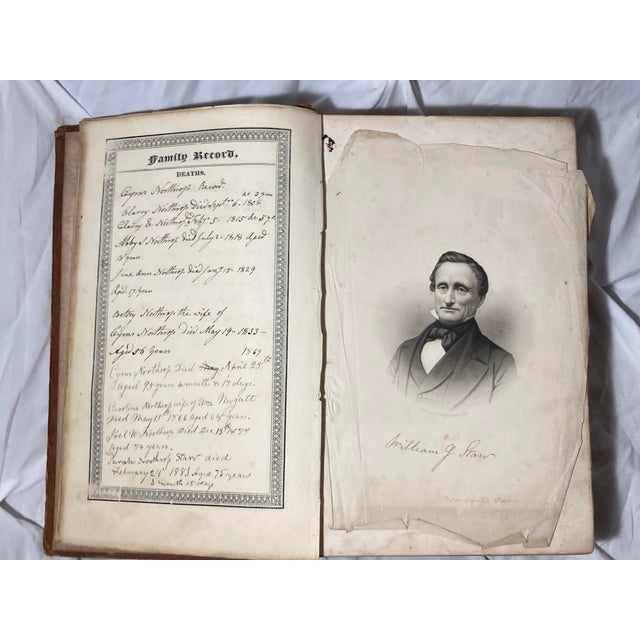 Family Record.
DEATHS.
Cyrus Northrop Record
Clarry Northrop Died Sept 6. 1808
Clarry E Northrop 5. 1815
Abby S Northrop died July 2. 1818 Aged
18 years
Jane Ann Northrop died Jany 15. 1829
Aged 17 years
Betsey Northrop the wife of
Cyrus Northrop Died May 19. 1833
Aged 56 years 1869
Cyrus Northrop Died April 25th
Aged 98 years. 4 month & 17 days.
Caroline Northrop wife of Wm Mygatt
died May 15th Aged years.
W. Northrop Died Dec 13th
Aged 74 years.
Sarah Northrop Starr died
February 21st 1883 Aged 75 years
3 month 15 days
William J Starr